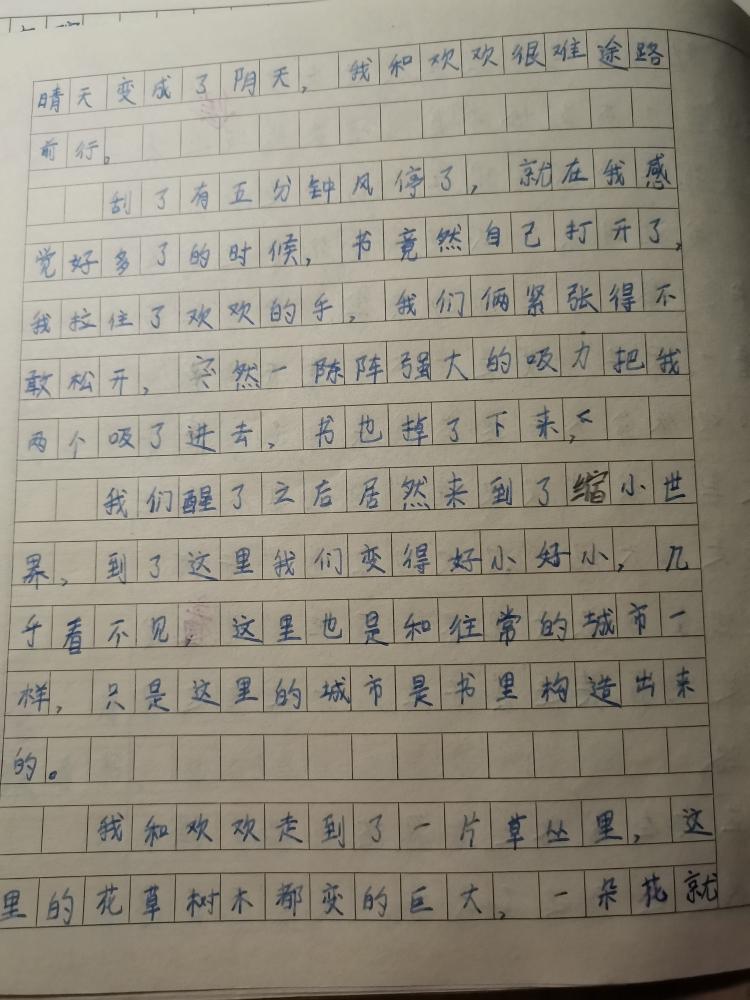 晴天变成了阴天，我和欢欢很难途路
前行。
刮了有五分钟风停了，就在我感
觉好多了的时候，书竟然自己打开了，
我拉住了欢欢的手，我们俩紧张得不
敢松开，突然一阵阵强大的吸力把我
两个吸了进去，书也掉了下来，
我们醒了之后居然来到了缩小世
界，到了这里我们变得好小好小，几
乎看不见，这里也是和往常的城市一
样，只是这里的城市是书里构造出来
的。
我和欢欢走到了一片草丛里，这
里的花草树木都变的巨大，一朵花就